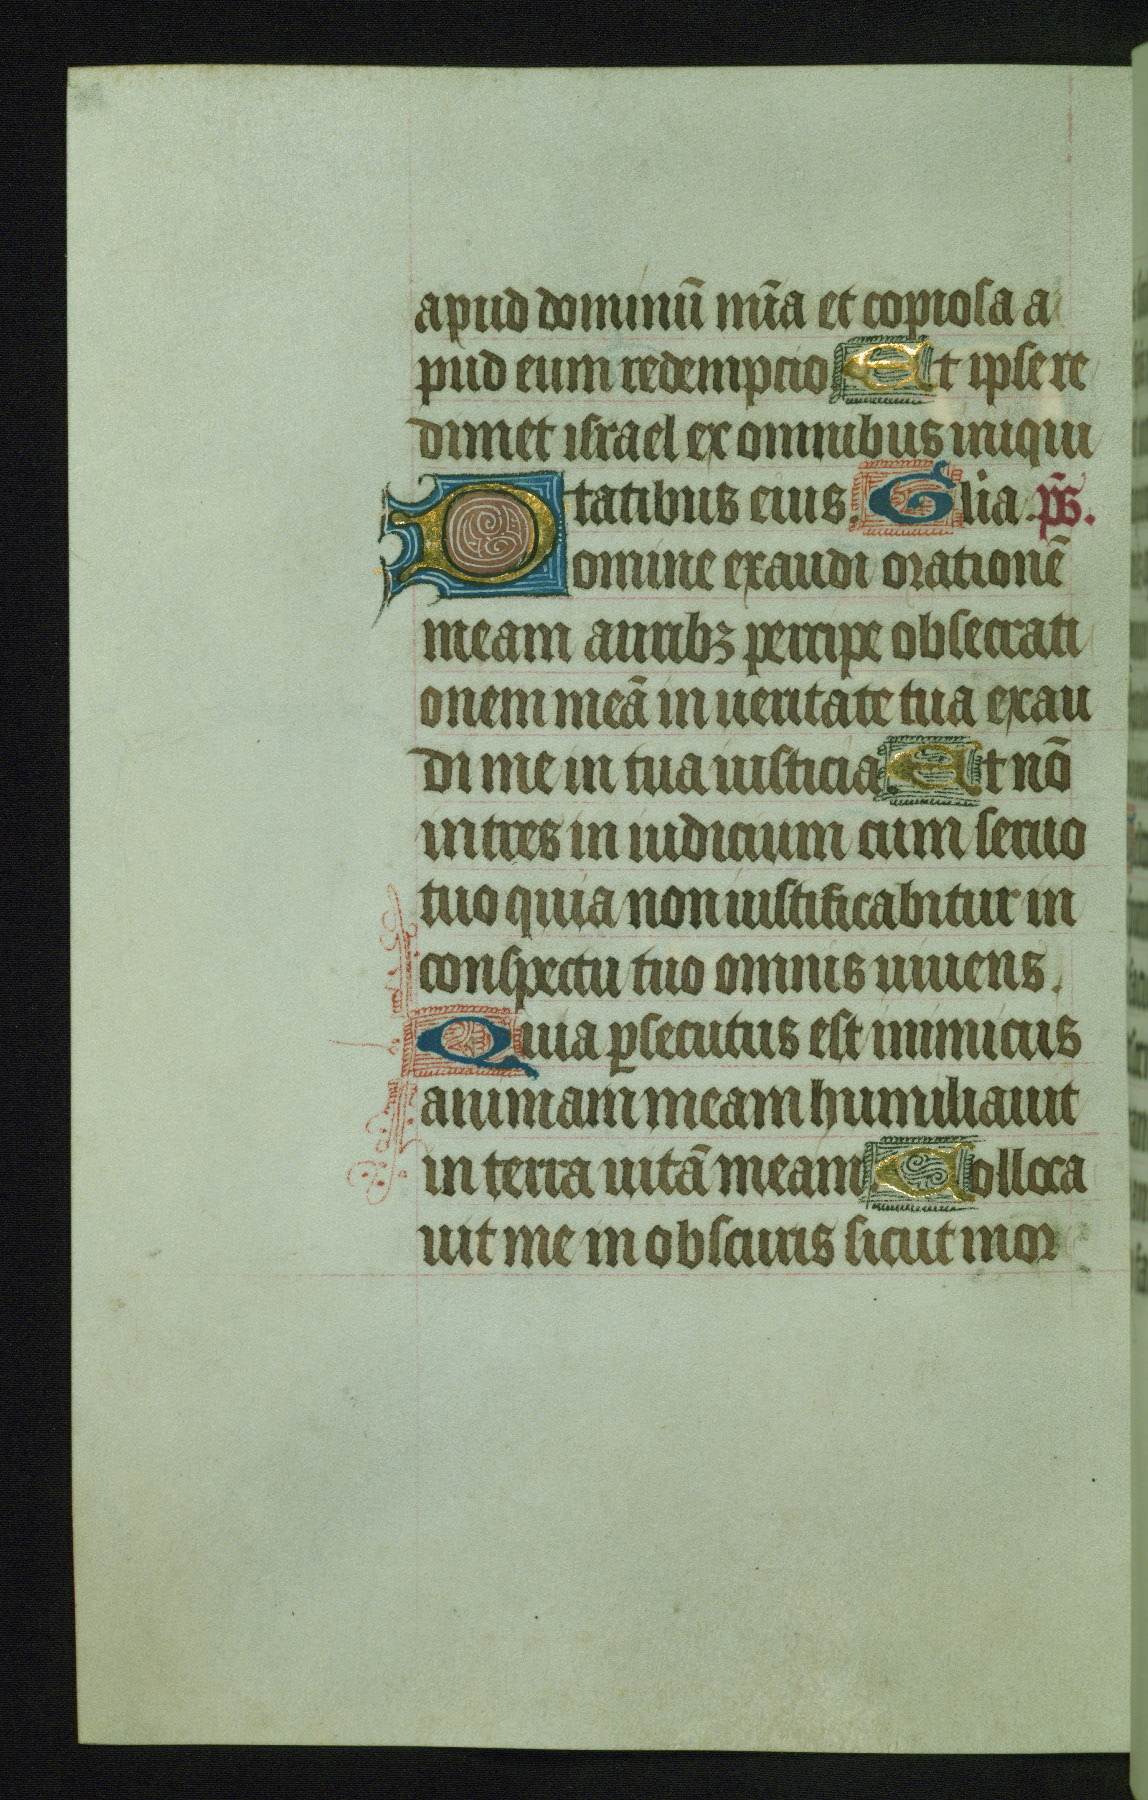 apud dominū mīa et copiosa a
pud eum redempcio Et ipse re
dimet israel ex omnibus iniqui
tatibus eius. Glīa. ps̄.
Domine exaudi orationē
meam auribꝫ percipe obsecrati
onem meā in ueritate tua exau
di me in tua iusticia. Et nō
intres in iudicium cum seruo
tuo quia non iustificabitur in
conspectu tuo omnis uiuens.
Quia ꝑsecutus est inimicus
animam meam humiliauit
in terra uitā meam. Colloca
uit me in obscuris sicut mor